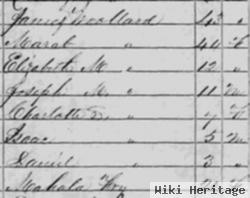 James Woollard 43 "
Marab " 40 F
Elizabeth M " 12 "
Joseph M " 11 m
Charlotte " 7 F
Isaac " 5 m
Daniel " 3 "
Mahala
Wiki Heritage